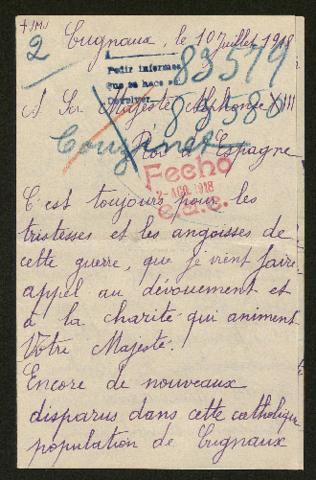 + JMJ
Cugnaux, le 10 Juillet 1918
2
Pedir informes
que se hace se
devolver
83579
83580
A Sa Majesté Alphonse XIII
Couzinet
Roi d'Espagne
Fecho
2-AGO. 1918
C'est toujours pour les
tristesses et les angoisses de
cette guerre, que je vient faire
appel au dévouement et
à la charité qui animent
Votre Majesté.
Encore de nouveaux
disparus dans cette catholique
population de Cugnaux